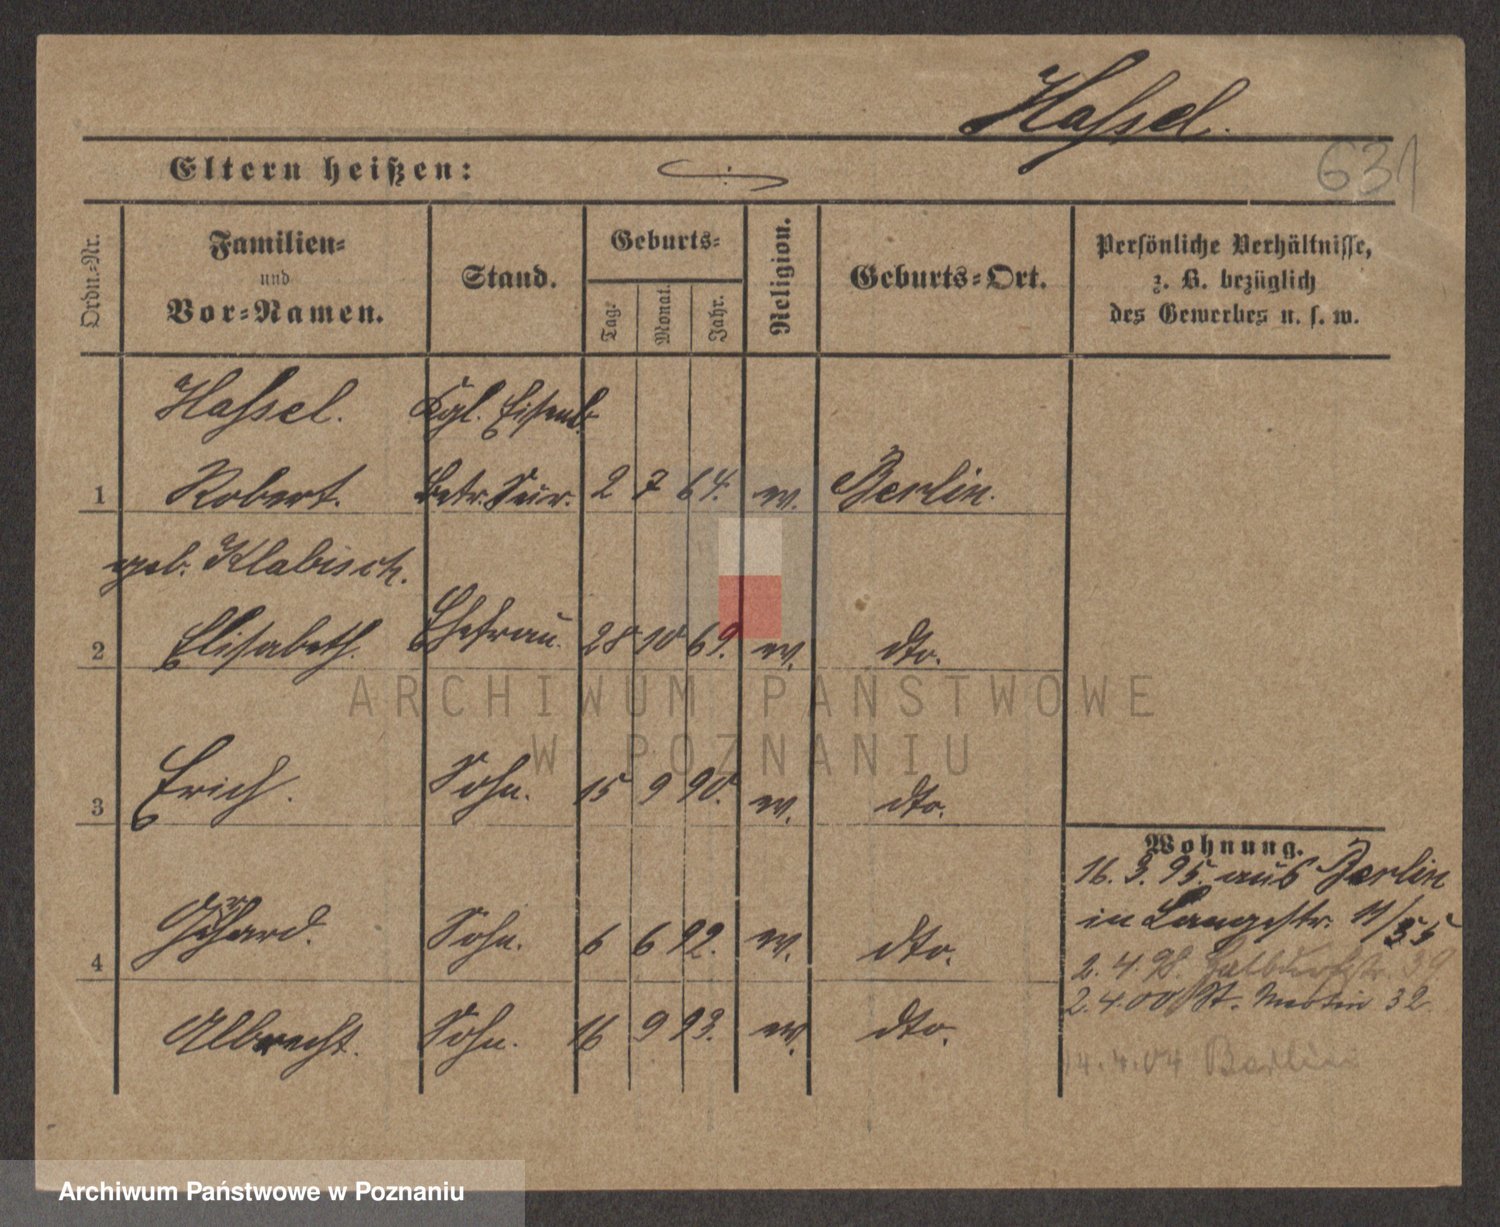 Hassel.
631
Eltern heißen:
Ordn.-Nr.
Familien-
und
Vor-Namen.
Stand.
Geburts-
Tag.
Monat.
Jahr.
Religion.
Geburts-Ort.
Persönliche Verhältnisse,
z. B. bezüglich
des Gewerbes u. s. w.
Hassel. Kgl. Eisenb.
1 Robert. Betr. Secr. 2 7 64. ev. Berlin.
geb. Klabisch.
2 Elisabeth. Ehefrau. 28 10 69. ev. dto.
3 Erich. Sohn. 15 9 90. ev. dto.
4 Gerhard. Sohn. 6 6 92. ev. dto.
Albrecht. Sohn. 16 9 93. ev. dto.
Wohnung.
16. 3. 95. aus Berlin
in Langestr. 11/
2. 4. 98. 39
2. 4. 00 St. Martin 32.
4. 04 Berlin
ARCHIWUM PAŃSTWOWE
W POZNANIU
Archiwum Państwowe w Poznaniu